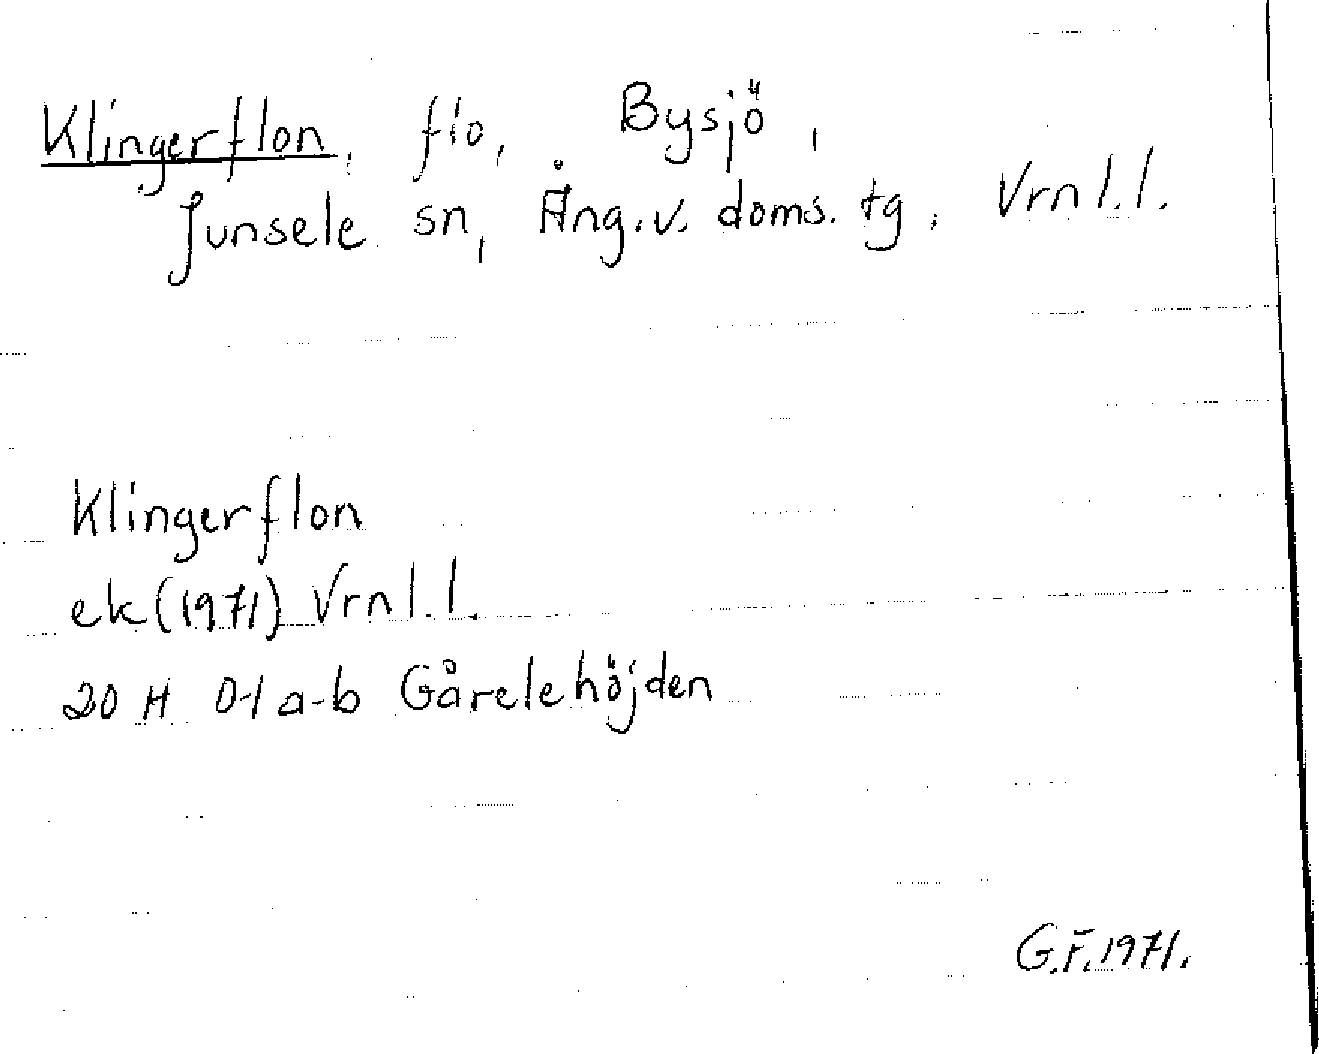 Klingerflon, flo, Bysjö,
Junsele sn, Ång.v. doms. tg, Vrnl.l.
Klingerflon
ek (1971) Vrnl.l.
20 H 0-1 a-b Gårelehöjden
G.F. 1971.